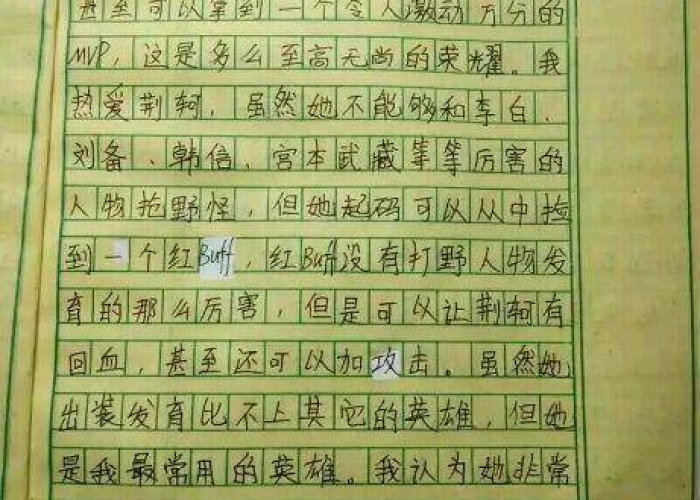 甚至可以拿到一个令人激动万分的
MVP，这是多么至高无尚的荣耀。我
热爱荆轲，虽然她不能够和李白、
刘备、韩信，宫本武藏等等厉害的
人物抢野怪，但她起码可以从中捡
到一个红Buff，红Buff没有打野人物发
育的那么厉害，但是可以让荆轲有
回血，甚至还可以加攻击。虽然她
出装发育比不上其它的英雄，但她
是我最常用的英雄。我认为她非常